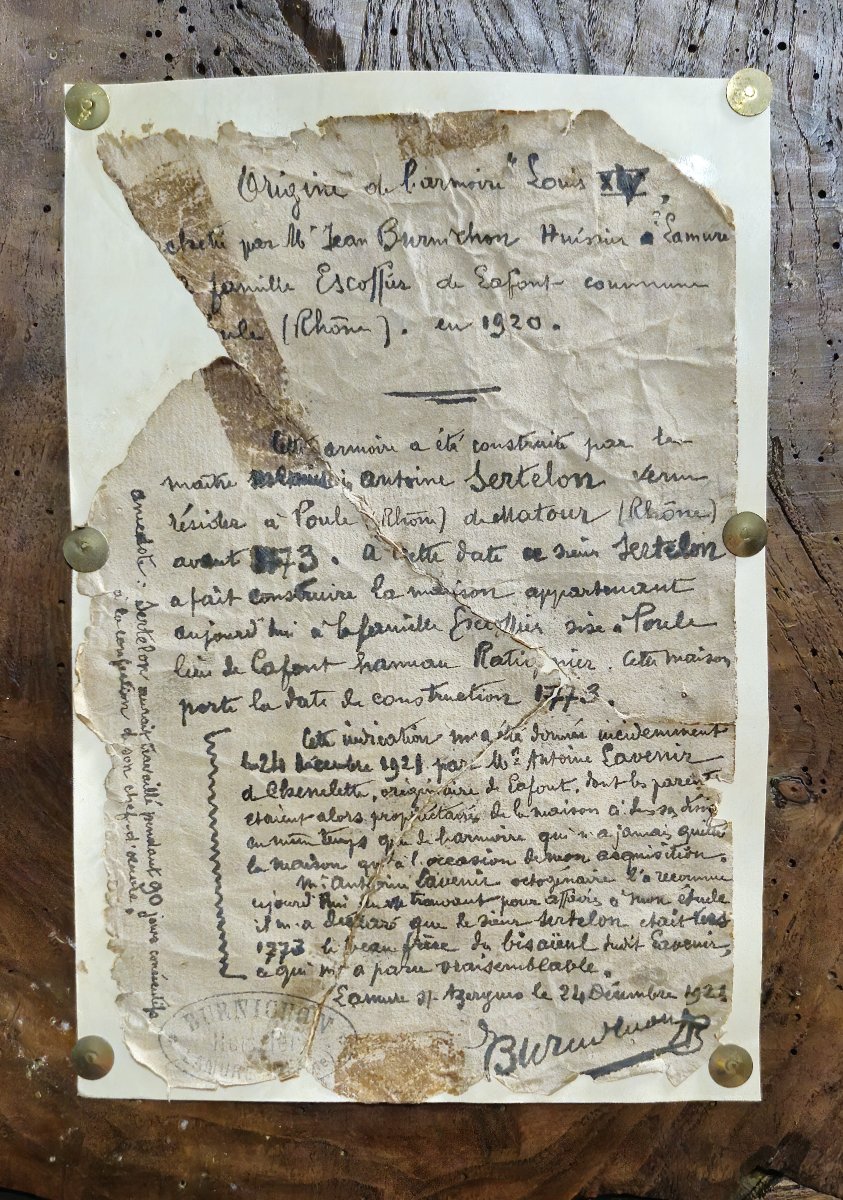 Origine de l'armoire "Louis XIV",
cheté par Mr Jean Burnichon Huissier à Lamure
famille Escoffier de Lafont commune
ule (Rhône). en 1920.
Cette armoire a été construite par le
maître Antoine Sertelon venu
résider à Poule (Rhône) de Matour (Rhône)
avant 1773. A cette date ce sieur Sertelon
a fait construire la maison appartenant
aujourd'hui à la famille Escoffier sise à Poule
lieu de Lafont hameau Cette maison
porte la date de construction 1773.
Cette indication m'a été donnée incidemment
le 24 décembre 1921 par Mr Antoine Lavenir
d Chenelette, originaire de Lafont, dont les parents
étaient alors propriétaires de la maison
en même temps que de l'armoire qui n'a jamais quitté
la maison qu'à l'occasion de mon acquisition.
Mr Antoine Lavenir octogénaire l'a reconnue
ujourd'hui en se trouvant pour affaires à mon étude
il m'a déclaré que le sieur Sertelon était
1773 le beau frère du bisaïeul dudit Lavenir,
ce qui m'a paru vraisemblable.
Lamure s/ Azergues le 24 Décembre 1921
Burnichon
BURNICHON
Huissier
LAMURE
anecdote : Sertelon aurait travaillé pendant 90 jours consécutifs
à la confection d son chef-d'œuvre.